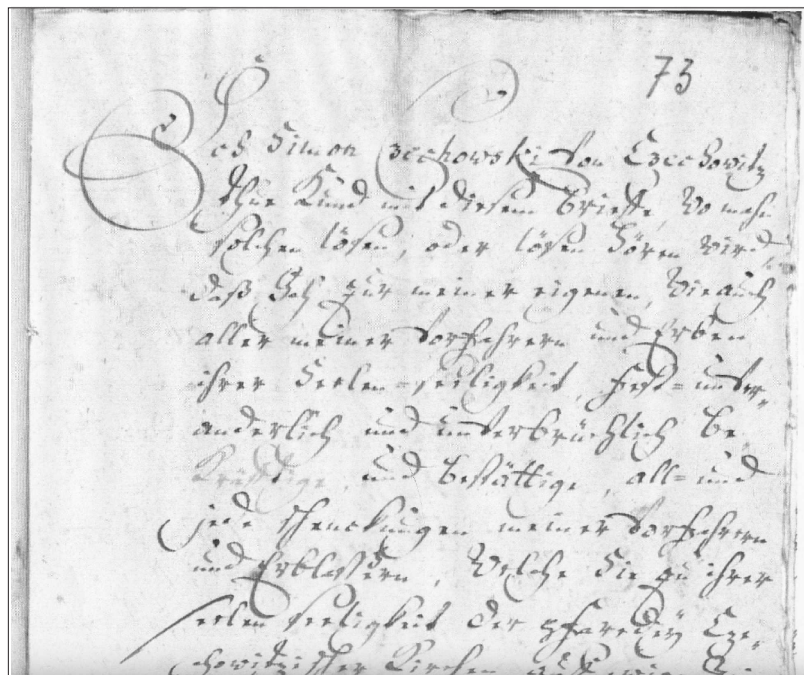 73
Ich Simon Czechowski von Czechowitz
thue Kund mit diesem Brieffe, Wo mahn
solchen lösen, oder lösen hören wird,
daß Ich zur meiner eigenen, Wie auch
aller meiner Vorfahrern und Erben
ihrer Seelen-seeligkeit, fest- unver-
anderlich und unverbrüchlich be-
Kräfftige, und bestättige, all- und
jede schenckungen meiner Vorfahrern
und Erblassern, Welche Sie zu ihrer
seelen seeligkeit der pfaredey Cze-
chowitzischer Kirchen